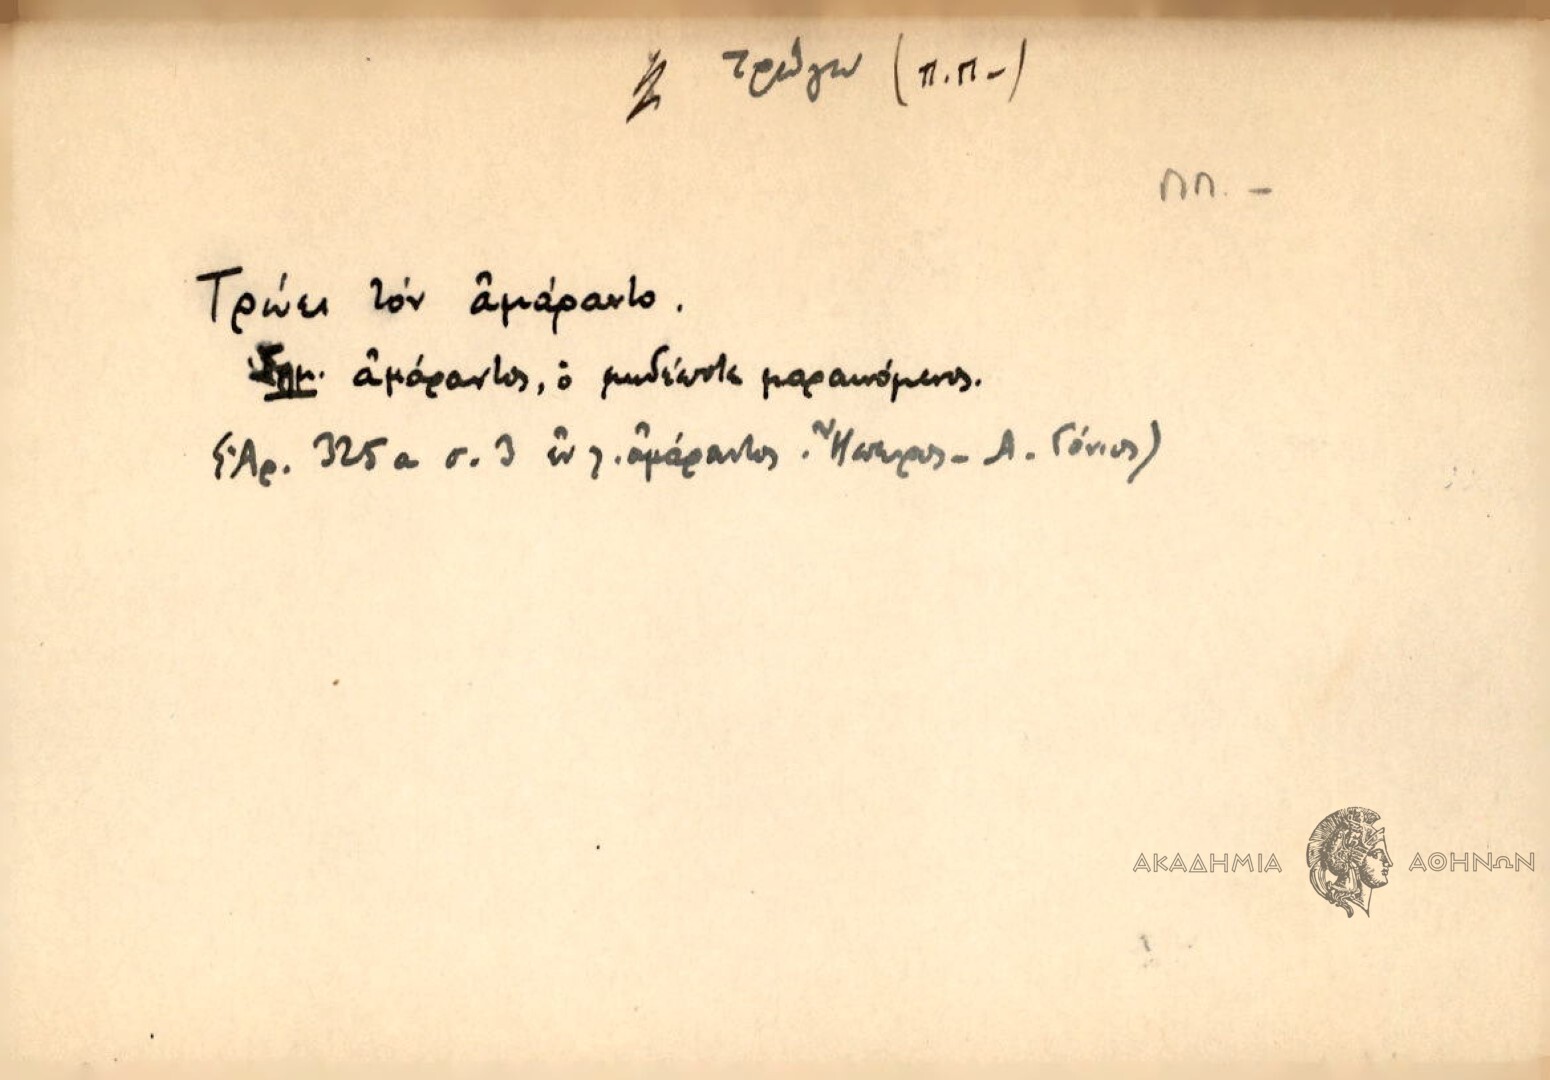 τρώγω (π.π-)
ΠΠ. -
Τρώει τόν ἀμάραντο.
Σημ. ἀμάραντος, ὁ μηδέποτε μαραινόμενος.
(Ἀρ. 325 α σ. 3 ἐν λ. ἀμάραντος. Ἤπειρος - Α. Γόνιος)
ΑΚΑΔΗΜΙΑ ΑΘΗΝΩΝ